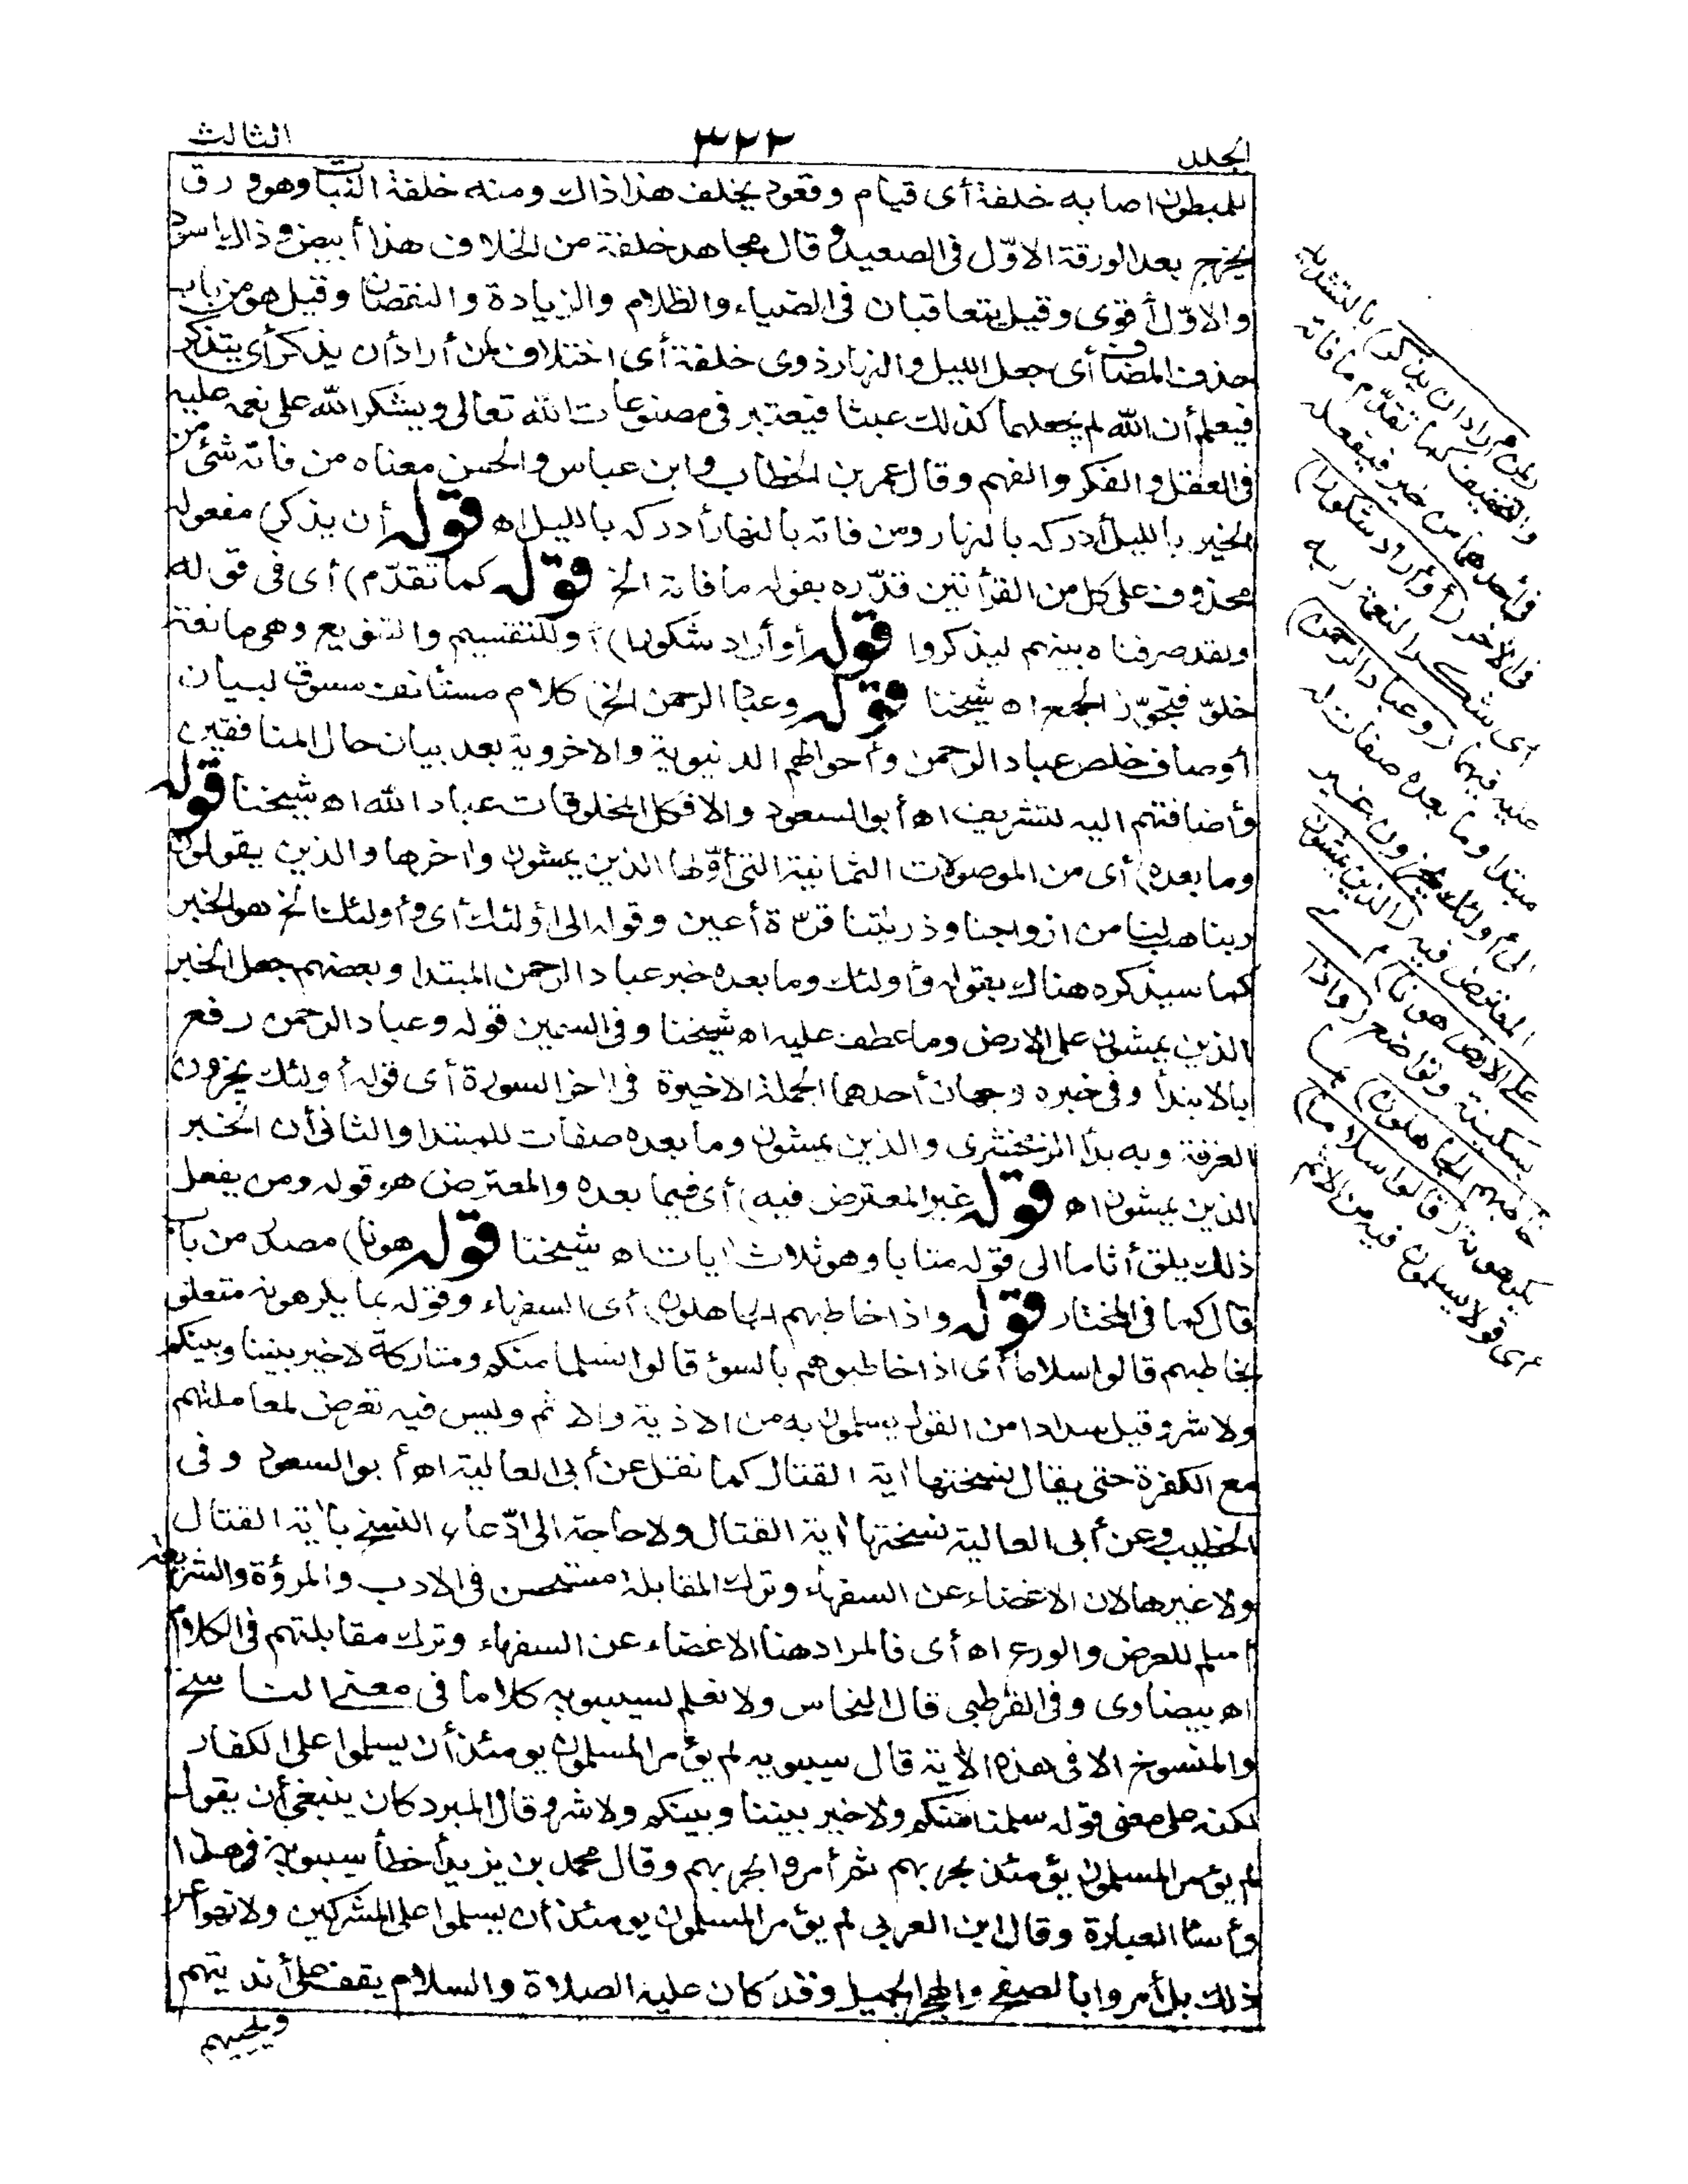 الجلد ٣٢٢ الثالث
للمبطون اصابه خلفة أى قيام وقعود يخلف هذا ذاك ومنه خلفة النبات وهو ورق
يخرج بعد الورقة الاوّل فى الصعيد وقال مجاهد خلفة من الخلاف هذا أبيض وذاك اسود
والاوّل أقوى وقيل يتعاقبان فى الضياء والظلام والزيادة والنقصان وقيل هو من باب
حذف المضاف أى جعل الليل والنهار ذوى خلفة أى اختلاف لمن أراد أن يذكر أى يتذكر
فيعلم أن الله لم يجعلهما كذلك عبثا فيعتبر فى مصنوعات الله تعالى ويشكر الله على نعمه عليه
فى العقل والفكر والفهم وقال عمر بن الخطاب وابن عباس والحسن معناه من فاته شئ من
الخير بالليل أدركه بالنهار ومن فاته بالنهار أدركه بالليل اه قوله أن يذكر) مفعوله
محذوف على كل من القرأتين قدّره بقوله ما فاته الخ قوله كما تقدّم) أى فى قوله
ولقد صرفناه بينهم ليذكروا قوله أو أراد شكورا) أو للتقسيم والتنويع وهى مانعة
خلوّ فتجوّز الجمع اه شيخنا قوله وعباد الرحمن الخ) كلام مستأنف مسوق لبيان
أوصاف خلص عباد الرحمن وأحوالهم الدنيوية والاخروية بعد بيان حال المنافقين
وأضافتهم اليه للتشريف اه أبو السعود والا فكل المخلوقات عباد الله اه شيخنا قوله
وما بعده) أى من الموصولات الثمانية التى أوّلها الذين يمشون واخرها والذين يقولون
ربنا هب لنا من ازواجنا وذريتنا قرّة أعين وقوله الى أولئك أى وأولئك الخ هو الخبر
كما سيذكره هناك بقوله وأولئك وما بعده خبر عباد الرحمن المبتدا وبعضهم جعل الخبر
الذين يمشون على الارض وما عطف عليه اه شيخنا وفى السمين قوله وعباد الرحمن رفع
بالابتدأ وفى خبره وجهان أحدهما الجملة الاخيرة فى اخر السورة أى قوله أولئك يجزون
الغرفة وبه بدأ الزمخشرى والذين يمشون وما بعده صفات للمبتدا والثانى أن الخبر
الذين يمشون اه قوله غير المعترض فيه) أى فيما بعده والمعترض هو قوله ومن يفعل
ذلك يلق أثاما الى قوله متابا وهو ثلاث ايات اه شيخنا قوله هونا) مصدر من باب
قال كما فى المختار قوله واذا خاطبهم الجاهلون) أى السفهاء وقوله بما يكرهونه متعلق
بخاطبهم قالوا سلاما أى اذا خاطبوهم بالسوء قالوا تسلما منكم ومتاركة لا خير بيننا وبينكم
ولا شر وقيل سدادا من القول يسلمون به من الاذية والاثم وليس فيه تعرض لمعاملتهم
مع الكفرة حتى يقال نسختها اية القتال كما نقل عن أبى العالية اه أبو السعود وفى
الخطيب وعن أبى العالية نسختها اية القتال ولا حاجة الى ادّعاء النسخ باية القتال
ولا غيرها لان الاغضاء عن السفهاء وترك المقابلة مستحسن فى الادب والمروءة والشريعة
اسلم للعرض والورع اه أى فالمراد هنا الاغضاء عن السفهاء وترك مقابلتهم فى الكلام
اه بيضاوى وفى القرطبى قال النحاس ولا نعلم لسيبويه كلاما فى معنى الناسخ
والمنسوخ الا فى هذه الاية قال سيبويه لم يؤمر المسلمون يومئذ أن يسلموا على الكفار
لكنه على معنى قوله سلمنا منكم ولا خير بيننا وبينكم ولا شر وقال المبرد كان ينبغى أن يقول
لم يؤمر المسلمون يؤمئذ بحربهم ثم أمروا بحربهم وقال محمد بن يزيد أخطأ سيبويه فى هذا
وأساء العبارة وقال ابن العربى لم يؤمر المسلمون يومئذ أن يسلموا على المشركين ولا نهوا عن
ذلك بل أمروا بالصفح والهجر الجميل وقد كان عليه الصلاة والسلام يقف على أنديتهم
ويحييهم
(لمن أراد أن يذكر) بالتشديد
والتخفيف كما تقدّم ما فاته
فى أحدهما من خير فيفعله
فى الاخر (أو أراد شكورا)
أى شكرا لنعمة ربه
عليه فيهما (وعباد الرحمن)
مبتدا وما بعده صفات له
الى أولئك يجزون غير
المعترض فيه (الذين يمشون
على الارض هونا) أى
بسكينة وتواضع (واذا
خاطبهم الجاهلون) بما
يكرهونه (قالوا سلاما)
أى قولا يسلمون فيه من الاثم